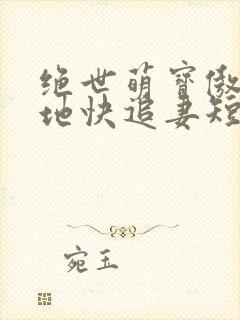 绝世萌寶傲
地快追妻短
宛玉